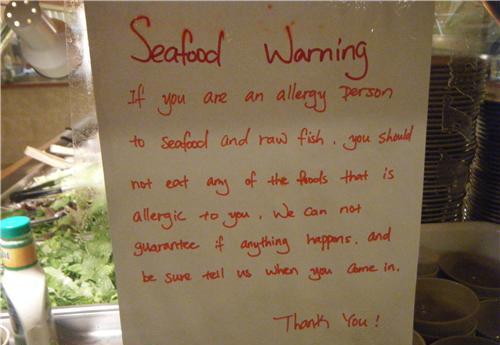 Seafood Warning
If you are an allergy person
to seafood and raw fish. you should
not eat any of the foods that is
allergic to you. We can not
guarantee if anything happens. and
be sure tell us when you come in.
Thank You!